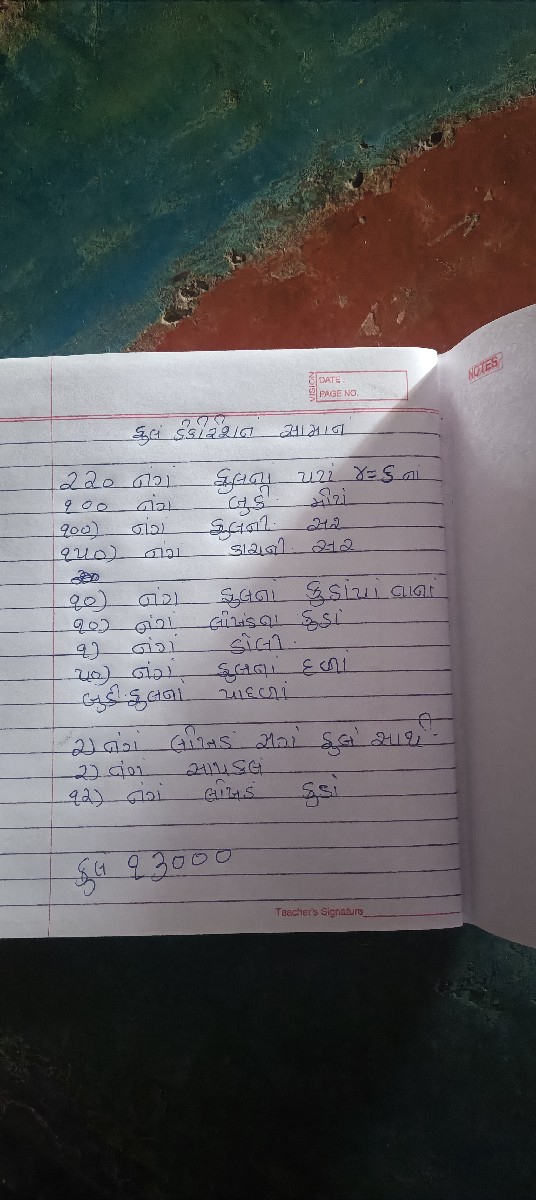 VISION
DATE :
PAGE NO.
NOTES
ફુલ ડેકોરેશન સામાન
૨૨૦ નંગ ફુલના પરા ૪=૬ નાં
૧૦૦ નંગ બુકી
૧૦૦) નંગ ફુલની સર
૧૫૦) નંગ કાચની સર
૧૦) નંગ ફુલનાં કુંડાંયાં વાનાં
૧૦) નંગ લોખંડના કુંડાં
૧) નંગ ડોલી
૫૦) નંગ ફુલનાં દળાં
બુકે ફુલનાં
૨) નંગ લોખંડ ફુલ સાથે
૨) નંગ સાયકલ
૧૨) નંગ લોખંડ કુંડાં
કુલ ૧૩૦૦૦
Teacher's Signature